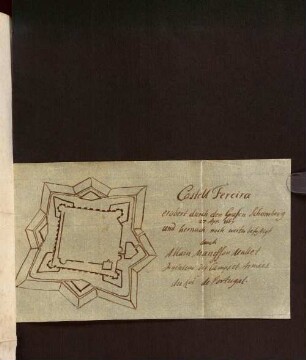 Castell Fereira
erobert durch den Grafen Schomberg
und hernach noch weiter befestiget
durch
Allain Manesson Mallet
Ingenieur des Camps et Armées
du roi de Portugal.